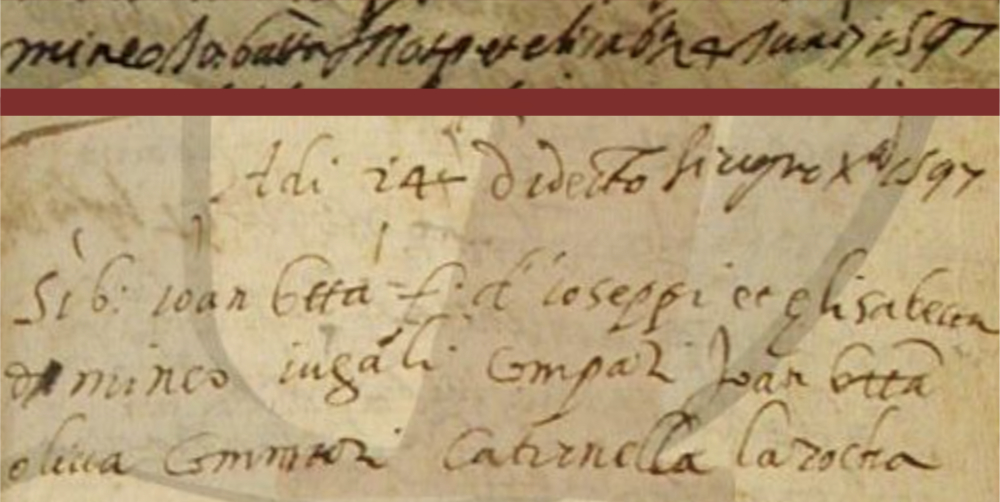 mineo Jo: batta Joseph et elisabeth 24 Junij 1597
Adi 24 di decto giugno Xe 1597
Si b: ioan btta f. d' ioseppi et elisabecta
di mineo iugali Compari Joan btta
oliva Commari Catirnella la rocha